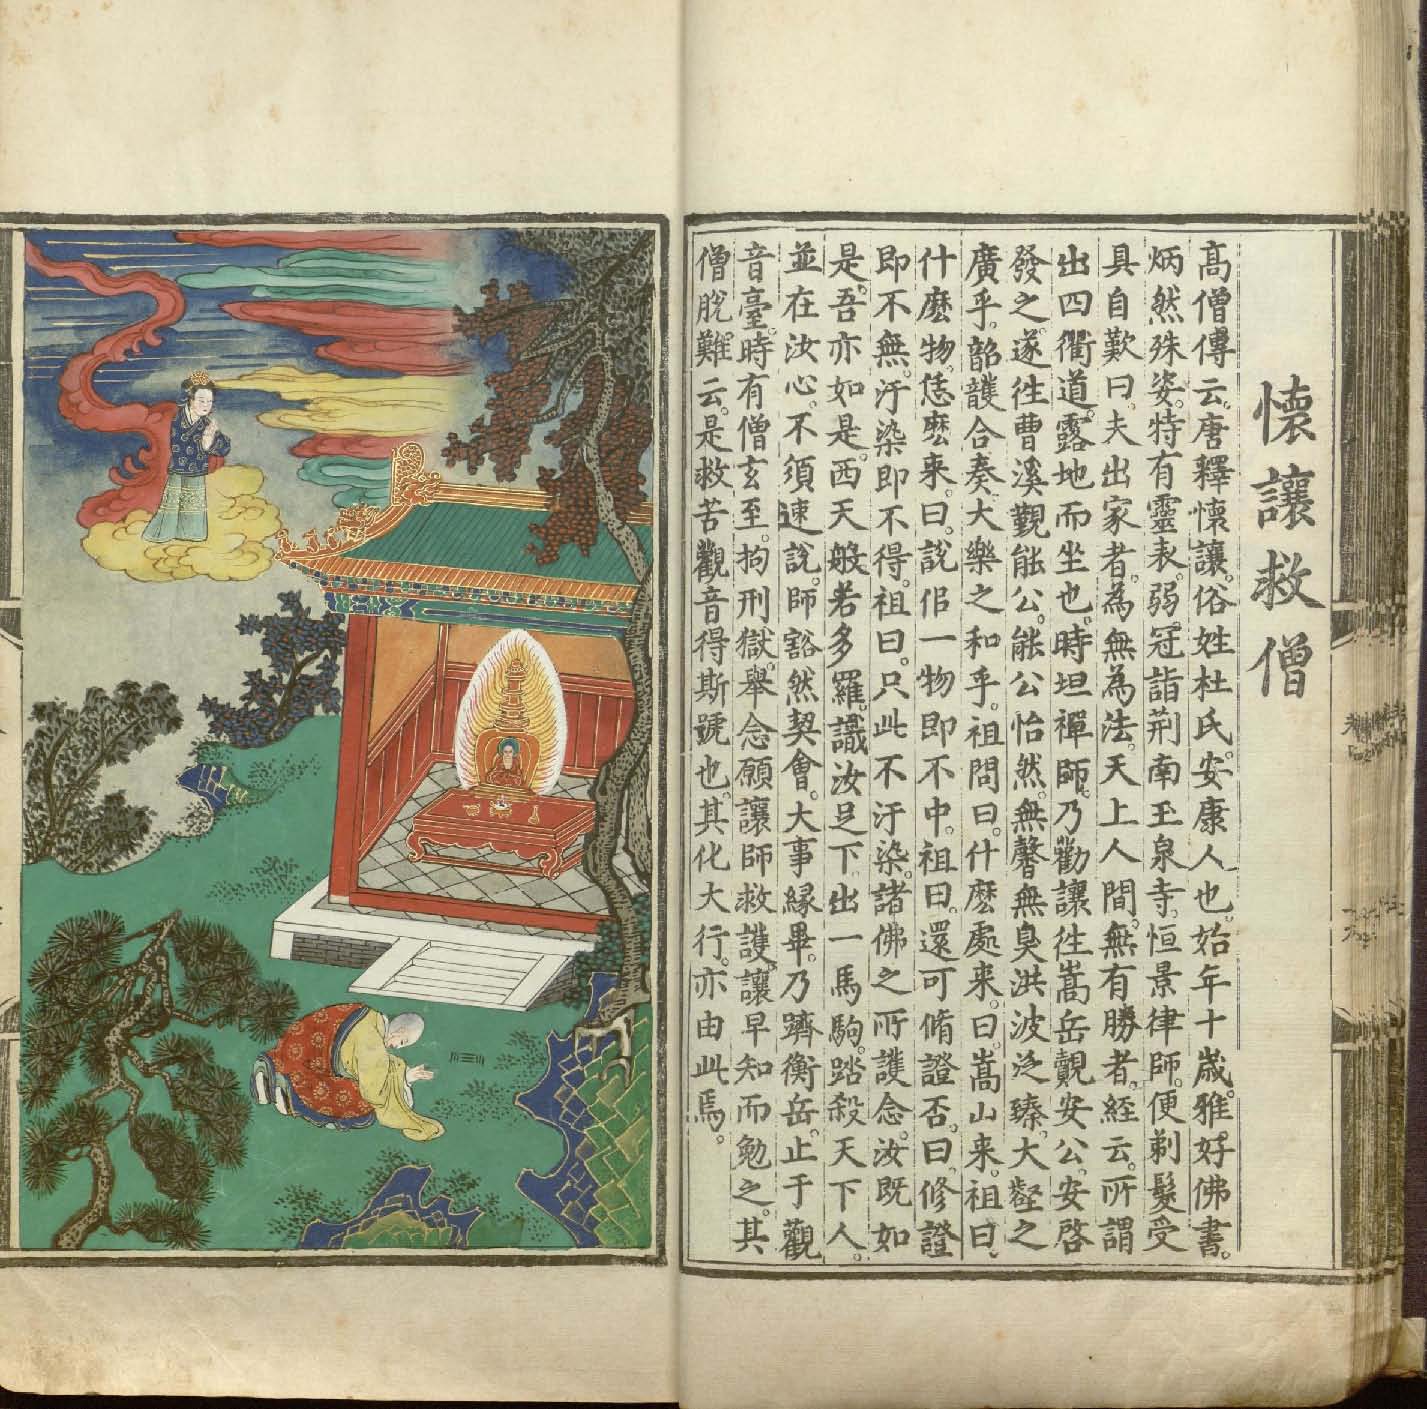 懷讓救僧
高僧傳云。唐釋懷讓。俗姓杜氏。安康人也。始年十歲。雅好佛書。
炳然殊姿。特有靈表。弱冠詣荊南玉泉寺。恒景律師。便剃髮受
具自歎曰。夫出家者。為無為法。天上人間。無有勝者。經云。所謂
出四衢道。露地而坐也。時坦禪師。乃勸讓往嵩岳覲安公。安啓
發之。遂往曹溪覲能公。能公怡然。無馨無臭洪波泛臻。大壑之
廣乎。韶護合奏。大樂之和乎。祖問曰。什麼處來。曰。嵩山來。祖曰。
什麼物。恁麼來。曰。說佀一物即不中。祖曰。還可脩證否。曰。修證
即不無。汙染即不得。祖曰。只此不汙染。諸佛之所護念。汝既如
是。吾亦如是。西天般若多羅。識汝足下。出一馬駒。踏殺天下人。
並在汝心。不須速說。師豁然契會。大事緣畢。乃躋衡岳。止于觀
音臺。時有僧玄至。拘刑獄。舉念願讓師救護。讓早知而勉之。其
僧脫難云。是救苦觀音得斯號也。其化大行。亦由此焉。